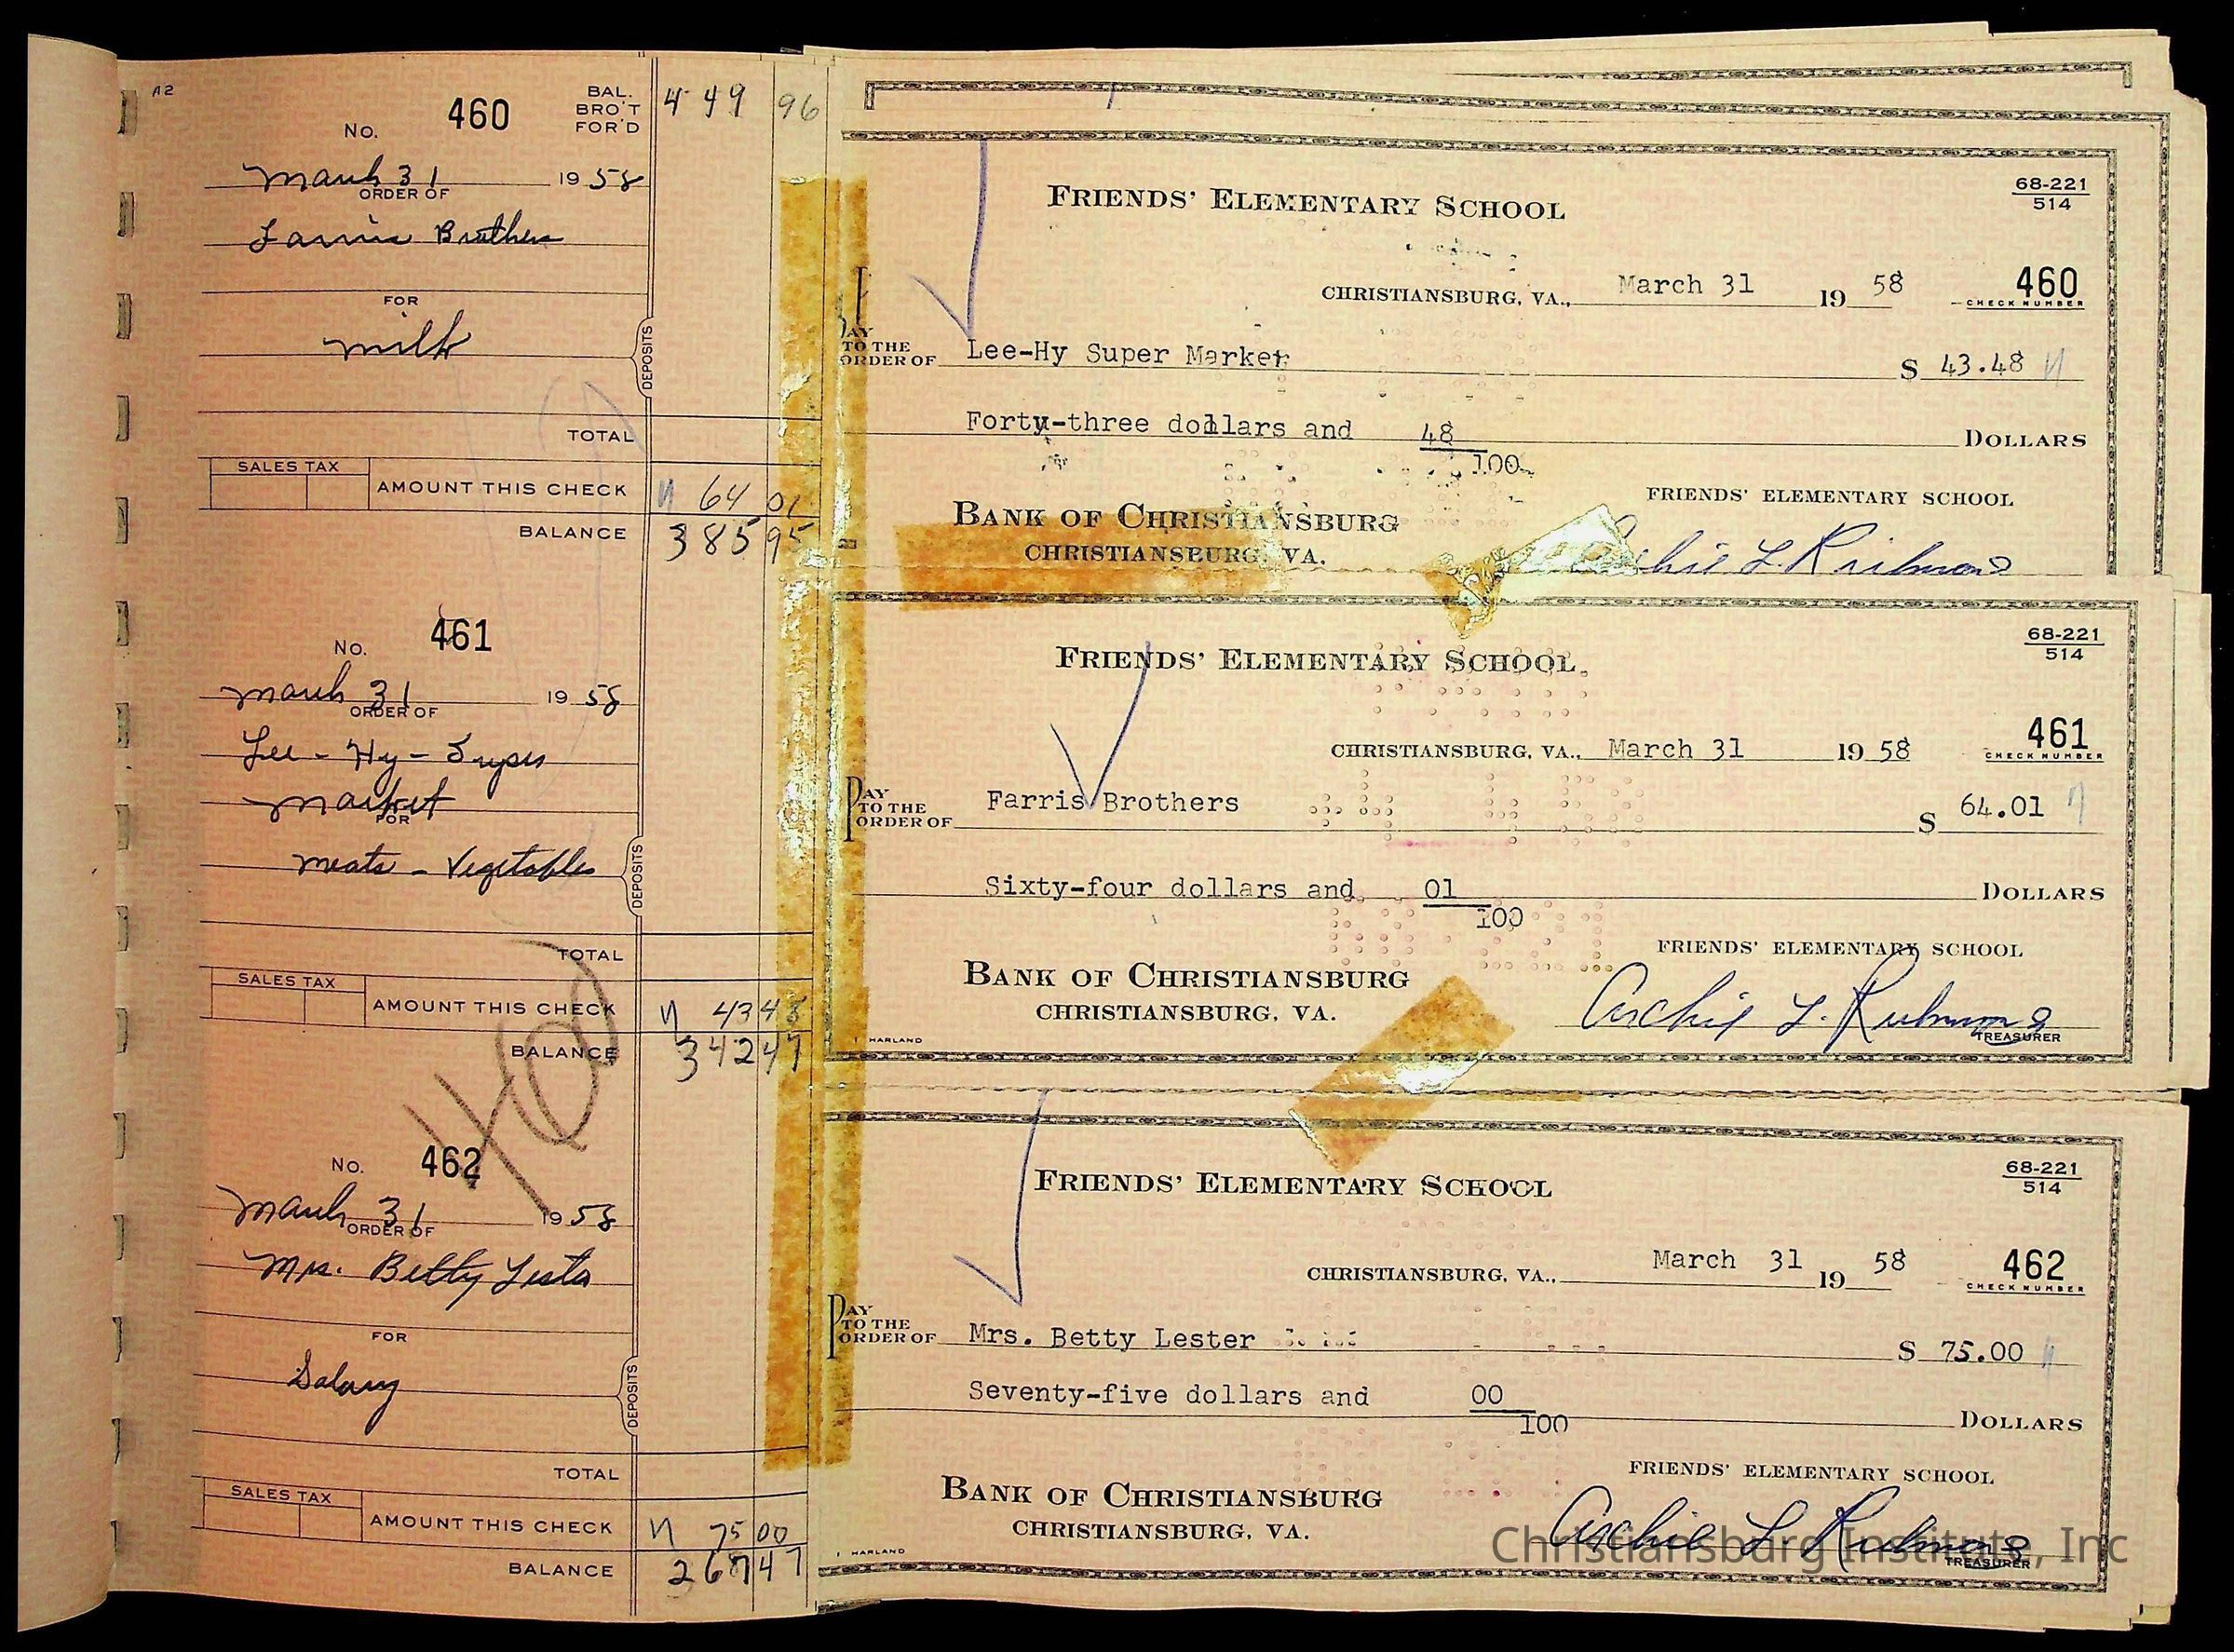 A2
No. 460
BAL. BRO'T FOR'D 449 96
March 31 1958
ORDER OF
Farris Brothers
FOR
milk
DEPOSITS
TOTAL
SALES TAX
AMOUNT THIS CHECK 64 01
BALANCE 385 95
No. 461
March 31 1958
ORDER OF
Lee-Hy-Super
market
FOR
meats - Vegetables
DEPOSITS
TOTAL
SALES TAX
AMOUNT THIS CHECK 43 48
BALANCE 342 47
No. 462
March 31 1958
ORDER OF
Mrs. Betty Lester
FOR
Salary
DEPOSITS
TOTAL
SALES TAX
AMOUNT THIS CHECK 75 00
BALANCE 267 47
FRIENDS' ELEMENTARY SCHOOL
68-221
514
CHRISTIANSBURG, VA., March 31 19 58
460
CHECK NUMBER
PAY TO THE ORDER OF Lee-Hy Super Market $ 43.48
Forty-three dollars and 48
100 DOLLARS
FRIENDS' ELEMENTARY SCHOOL
BANK OF CHRISTIANSBURG
CHRISTIANSBURG, VA.
FRIENDS' ELEMENTARY SCHOOL
68-221
514
CHRISTIANSBURG, VA., March 31 19 58
461
CHECK NUMBER
PAY TO THE ORDER OF Farris Brothers $ 64.01
Sixty-four dollars and 01
100 DOLLARS
FRIENDS' ELEMENTARY SCHOOL
BANK OF CHRISTIANSBURG
CHRISTIANSBURG, VA.
Archie L.
TREASURER
HARLAND
FRIENDS' ELEMENTARY SCHOOL
68-221
514
CHRISTIANSBURG, VA., March 31 19 58
462
CHECK NUMBER
PAY TO THE ORDER OF Mrs. Betty Lester $ 75.00
Seventy-five dollars and 00
100 DOLLARS
FRIENDS' ELEMENTARY SCHOOL
BANK OF CHRISTIANSBURG
CHRISTIANSBURG, VA.
Archie L
TREASURER
HARLAND
Christiansburg Institute, Inc